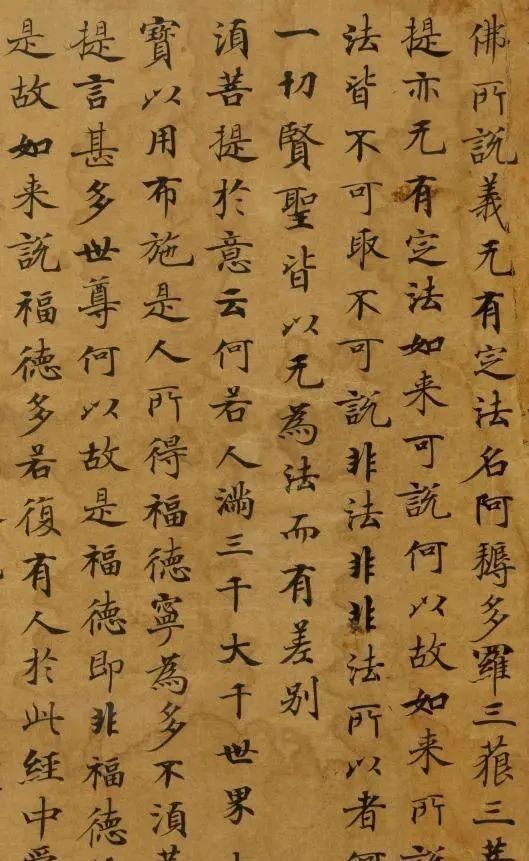 佛所說義无有定法名阿耨多羅三藐三菩
提亦无有定法如来可說何以故如来所說
法皆不可取不可說非法非非法所以者何
一切賢聖皆以无為法而有差别
湏菩提於意云何若人滿三千大千世界
寶以用布施是人所得福德寧為多不湏菩
提言甚多世尊何以故是福德即非福德
是故如来說福德多若復有人於此經中受